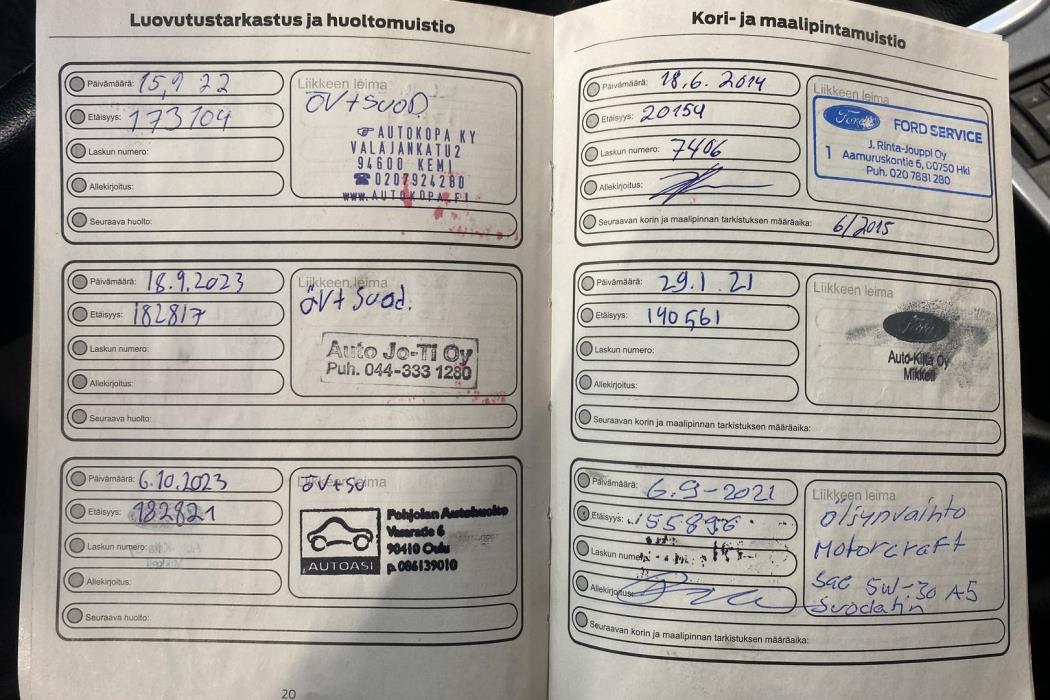 Luovutustarkastus ja huoltomuistio
Päivämäärä: 15,9 22
Etäisyys: 173104
Laskun numero:
Allekirjoitus:
Seuraava huolto:
Liikkeen leima
ÖV+SUOD.
☞ AUTOKOPA KY
VALAJANKATU2
94600 KEMI
☎0207924280
www.AUTOKOPA.FI
Päivämäärä: 18.9.2023
Etäisyys: 182817
Laskun numero:
Allekirjoitus:
Seuraava huolto:
Liikkeen leima
ÖV+ Suod.
Auto Jo-Ti Oy
Puh. 044-333 1280
Päivämäärä: 6.10.2023
Etäisyys: 182821
Laskun numero:
Allekirjoitus:
Seuraava huolto:
Liikkeen leima
ÖV+SU
AUTOASI
Pohjolan Autohuolto
Vasaratie 6
90410 Oulu
p.086139010
20
Kori- ja maalipintamuistio
Päivämäärä: 18.6.2014
Etäisyys: 20154
Laskun numero: 7406
Allekirjoitus:
Seuraavan korin ja maalipinnan tarkistuksen määräaika: 6/2015
Liikkeen leima
Ford FORD SERVICE
J. Rinta-Jouppi Oy
1 Aamuruskontie 6, 00750 Hki
Puh. 020 7881 280
Päivämäärä: 29.1.21
Etäisyys: 140561
Laskun numero:
Allekirjoitus:
Seuraavan korin ja maalipinnan tarkistuksen määräaika:
Liikkeen leima
Ford
Auto-Kilta Oy
Mikkeli
Päivämäärä: 6.9-2021
Etäisyys: 155896
Laskun numero:
Allekirjoitus:
Seuraavan korin ja maalipinnan tarkistuksen määräaika:
Liikkeen leima
Öljynvaihto
Motorcraft
Sae 5W-30 A5
Suodatin